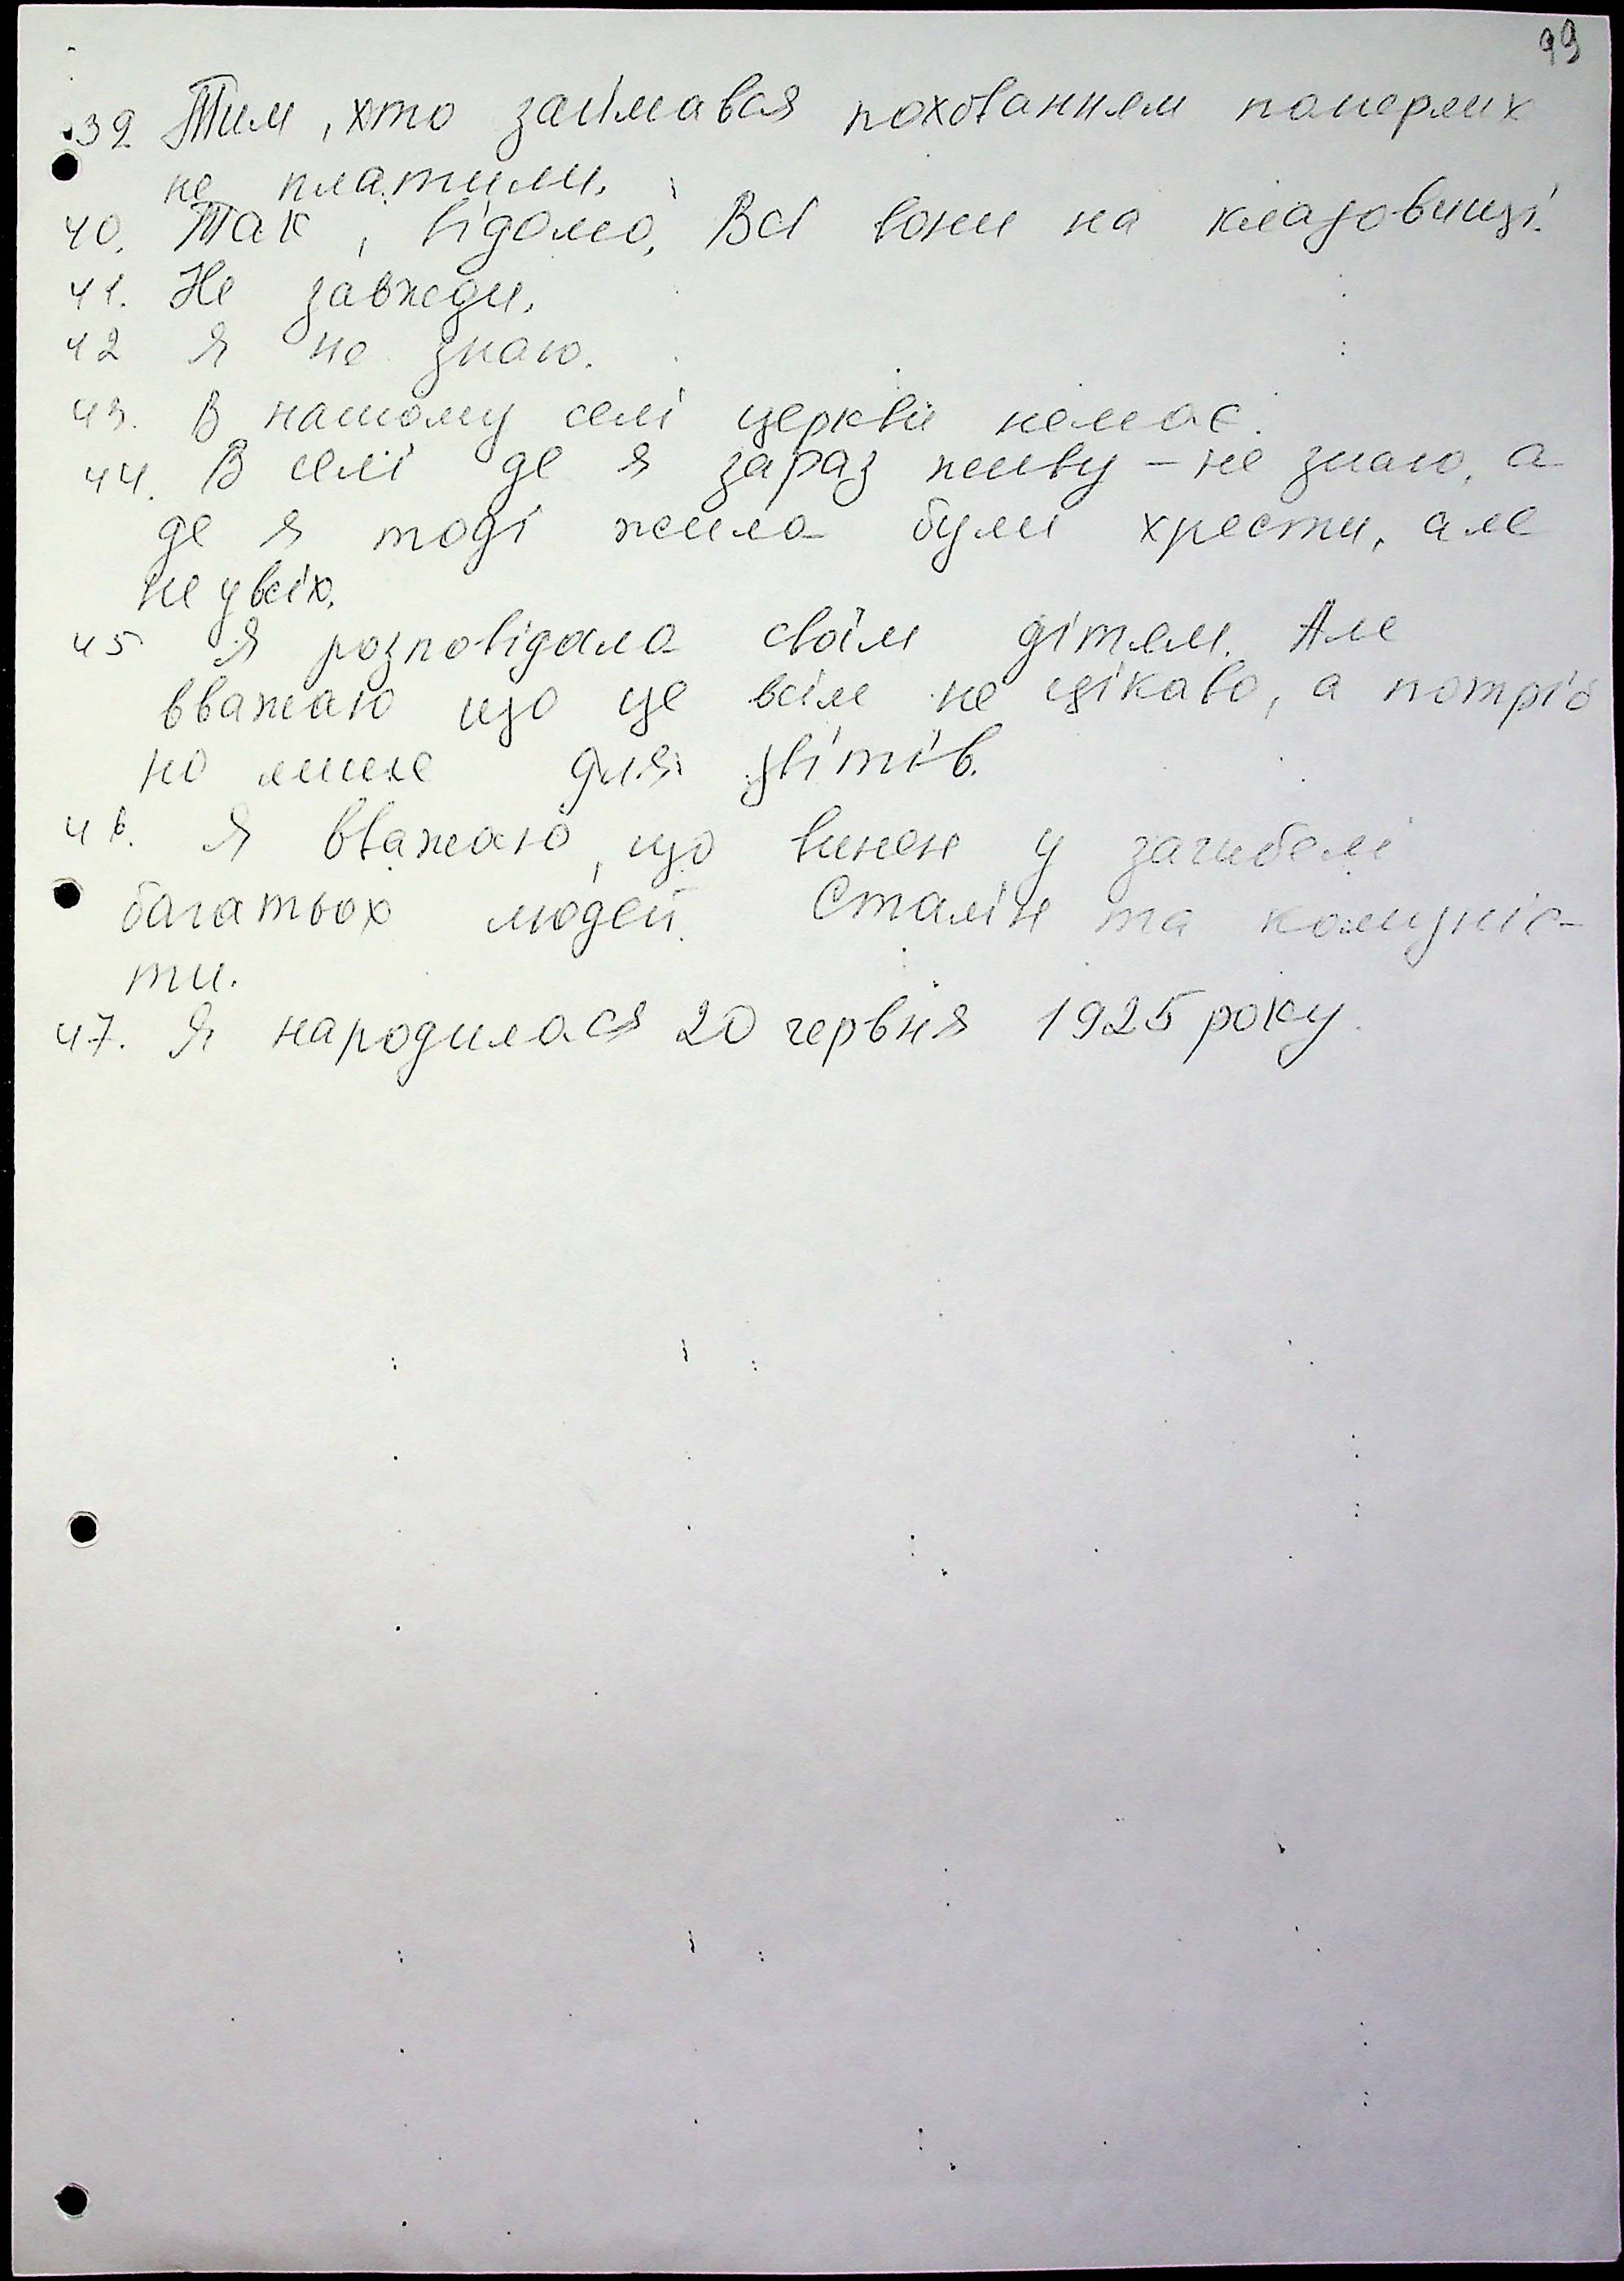 99
39 Тим, хто займався похованням померлих
не платили.
40. Так, відомо, Всі вони на кладовищі.
41. Не завжди.
42 Я не знаю.
43. В нашому селі церкви немає.
44. В селі де я зараз живу – не знаю, а
де я тоді жила були хрести, але
не у всіх.
45 Я розповідала своїм дітям. Але
вважаю що це всім не цікаво, а потріб
но лише для звітів.
46. Я вважаю, що винен у загибелі
багатьох людей Сталін та комуніс-
ти.
47. Я народилася 20 червня 1925 року.